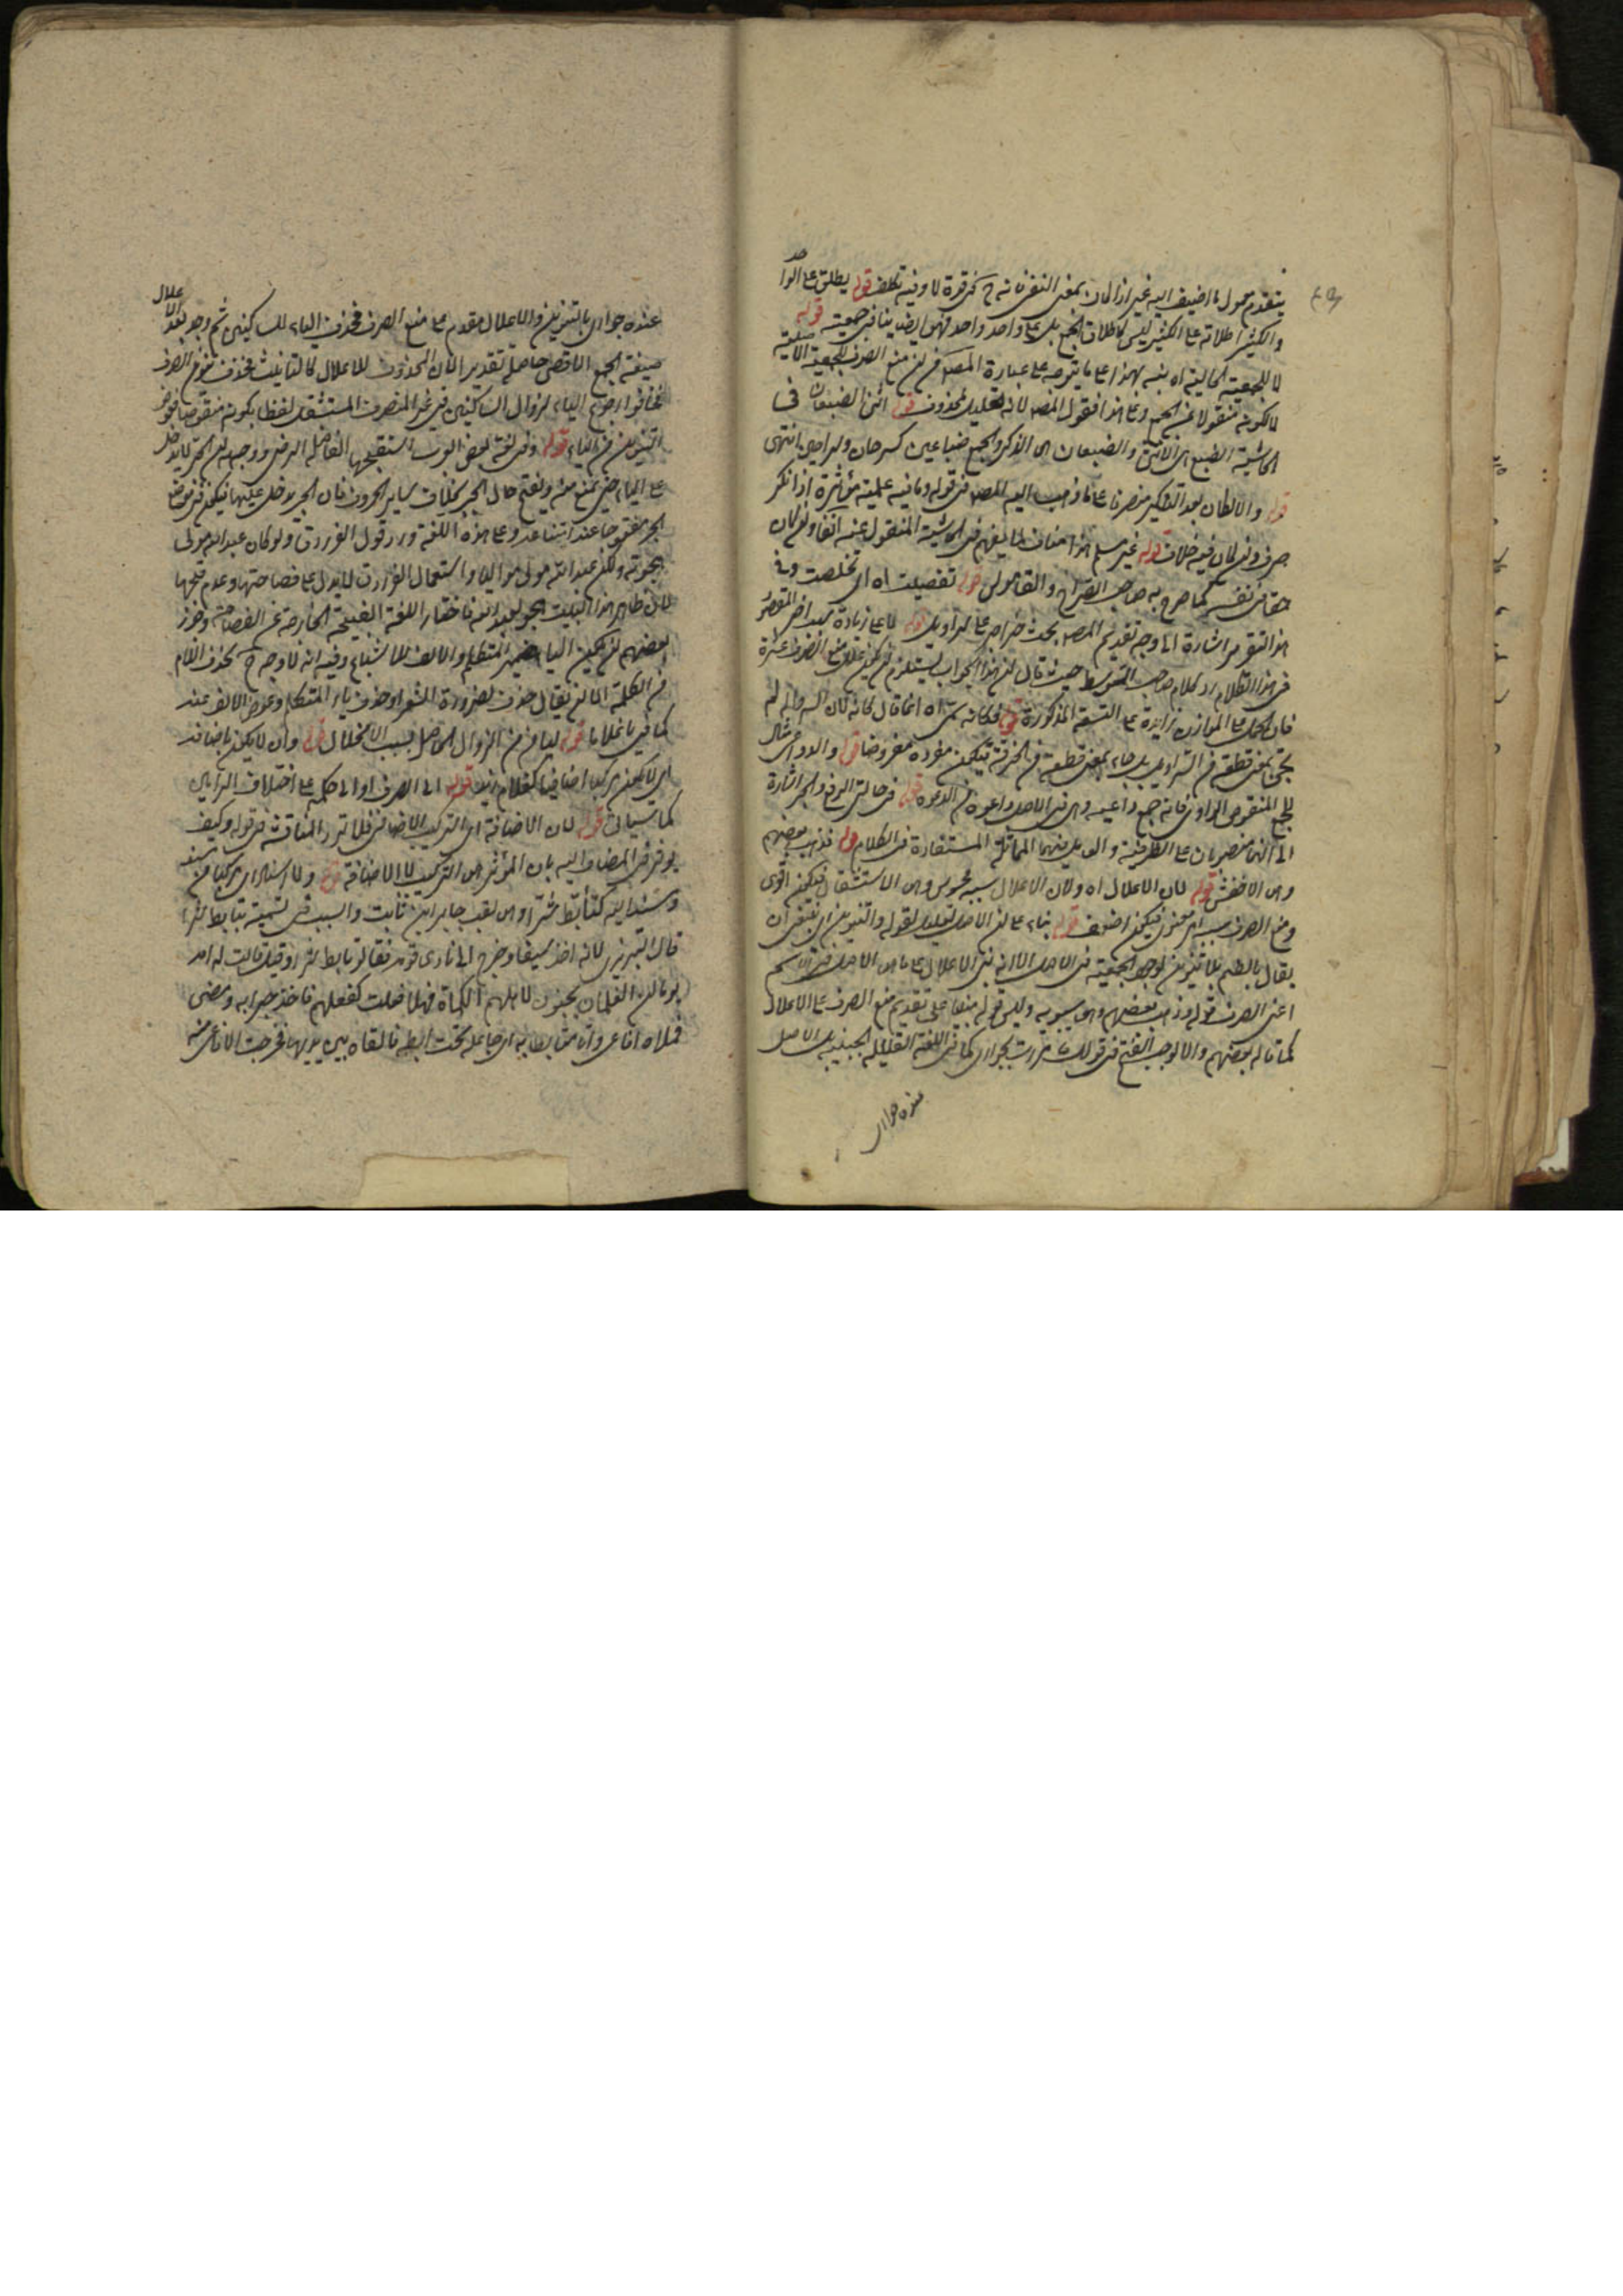 يتقدم معمول ما اضيف اليه غير اذا كان بمعنى النفى فانه ح كفرقة لا وفيه تكلف قوله يطلق على الواحد
والكثير اطلاقه على الكثير ليس كاطلاق الجمع بل على واحد واحد فهو ايضا ينافى جمعيته قوله
لا للجمعية الحالية اه بنبه بهذا على ما يتوجه على عبارة المصنف من ان منع الصرف للجمعية الاصلية
لا لكونه منقولا عن الجمع وعلى هذا فقول المصنف لانه تعليل لمحذوف قوله انثى الضبعان فى
الحاشية الضبع هى الانثى والضبعان هو الذكر والجمع ضباعين كسرحان وسراحين انتهى
قوله والا لكان بعد التنكير منصرفا على ما ذهب اليه المصنف فى قوله وما فيه علمية مؤثرة اذا نكر
صرف وان كان فيه خلاف قوله غير مسلم هذا مناف لما يفهم من الحاشية المنقول عنه آنفا وان كان
حقا فى نفسه كما صرح به صاحب الصراح والقاموس قوله تفصيلت اه اى تخلصت وفى
هذا التقرير اشارة الى وجه تقديم المصنف بحث حضاجر على سراويل قوله لا على زيادة سبب اخر المقصود
من هذا الكلام رد كلام صاحب المتوسط حيث قال ان هذا الجواب يستلزم ان يكون علل منع الصرف عشرة
فان الحمل على الموازن زائدة على التسعة المذكورة قوله فكانه سمى اه انما قال كانه لان السروالة لم
تجئ بمعنى قطعة من السراويل بل جاء بمعنى قطعة من الخرقة فيكون مفرده مفروضا قوله والدواعى مثال
للجمع المنقوص الواوى فانه جمع داعية وهى فى الاصل داعوة من الدعوة قوله فى حالتى الرفع والجر اشارة
الى انهما منصوبان على الظرفية والعامل فيهما المماثلة المستفادة من الكلام قوله فذهب بعضهم
وهو الاخفش قوله لان الاعلال اه ولان الاعلال سببه محسوس وهو الاستثقال فيكون اقوى
ومنع الصرف سببه امر معنوى فيكون اضعف قوله بناء على ان الاصل تعليل لقوله والتنوين
اعنى الصرف قوله وذهب بعضهم وهو سيبويه وليس قوله مبنيا على تقديم منع الصرف على الاعلال
كما قاله بعضهم والا لوجب الفتح فى قولك مررت بجوارى كما فى اللغة القليلة الخبيثة بل الاصل
عنده جوار
عنده جوارى بالتنوين والاعلال مقدم على منع الصرف فحذف الياء للساكنين ثم وجد بعد الاعلال
صيغة الجمع الاقصى حاصلة تقديرا لان المحذوف للاعلال كالثابت فحذف تنوين الصرف
فخافوا رجوع الياء لزوال الساكنين فى غير المنصرف المستثقل لفظا بكونه منقوصا فعوض
التنوين من الياء قوله وفى لغة لبعض العرب استقبحها الفاضل الرضى ووجهه ان الجر لا يدخل
على الياء حتى يمنع منه ويفتح حال الجر بخلاف ساير الحروف فان الجر يدخل عليها فيكون فى موضع
الجر مفتوحا عند امتناعه وعلى هذه اللغة ورد قول الفرزدق ولو كان عبد الله مولى
هجوته ولكن عبد الله مولى مواليا واستعمال الفرزدق لا يدل على فصاحتها وعدم قبحها
لان ظاهر هذا البيت هجو لعبد الله فاختار اللغة القبيحة الخارجة عن الفصاحة وجوز
بعضهم ان يكون الياء ضمير المتكلم والالف للاشباع وفيه انه لا وجه ح بحذف اللام
من الكلمة الا ان يقال حذف لضرورة الشعر او حذف ياء المتكلم وعوض الالف عنه
كما فى يا غلاما قوله ليامن من الزوال الحاصل بسبب الانحلال قوله وان لا يكون باضافة
اى لا يكون مركبا اضافيا كغلام زيد قوله الى الصرف او الى حكمه على اختلاف الرأيين
كما سيأتى قوله لان الاضافة اى التركيب الاضافى فلا ترد المناقشة فى قوله وكيف
يؤثر فى المضاف اليه بان المؤثر هو التركيب لا الاضافة قوله ولا اسناد اى مركبا من مسند
ومسند اليه كتأبط شرا وهو لقب جابر ابن ثابت والسبب فى تسميته بتابط شرا
قال التبريزى لانه اخذ سيفا وخرج الى نادى قومه فقالوا تابط شرا وقيل قالت له امه
يوما ان الغلمان يجنون لاهلهم الكماة فهلا فعلت كفعلهم فاخذ جرابه ومضى
فملاه افاعى واتى متابطا به اى جاعله تحت ابطه فالقاه بين يديها فخرجت الافاعى منه